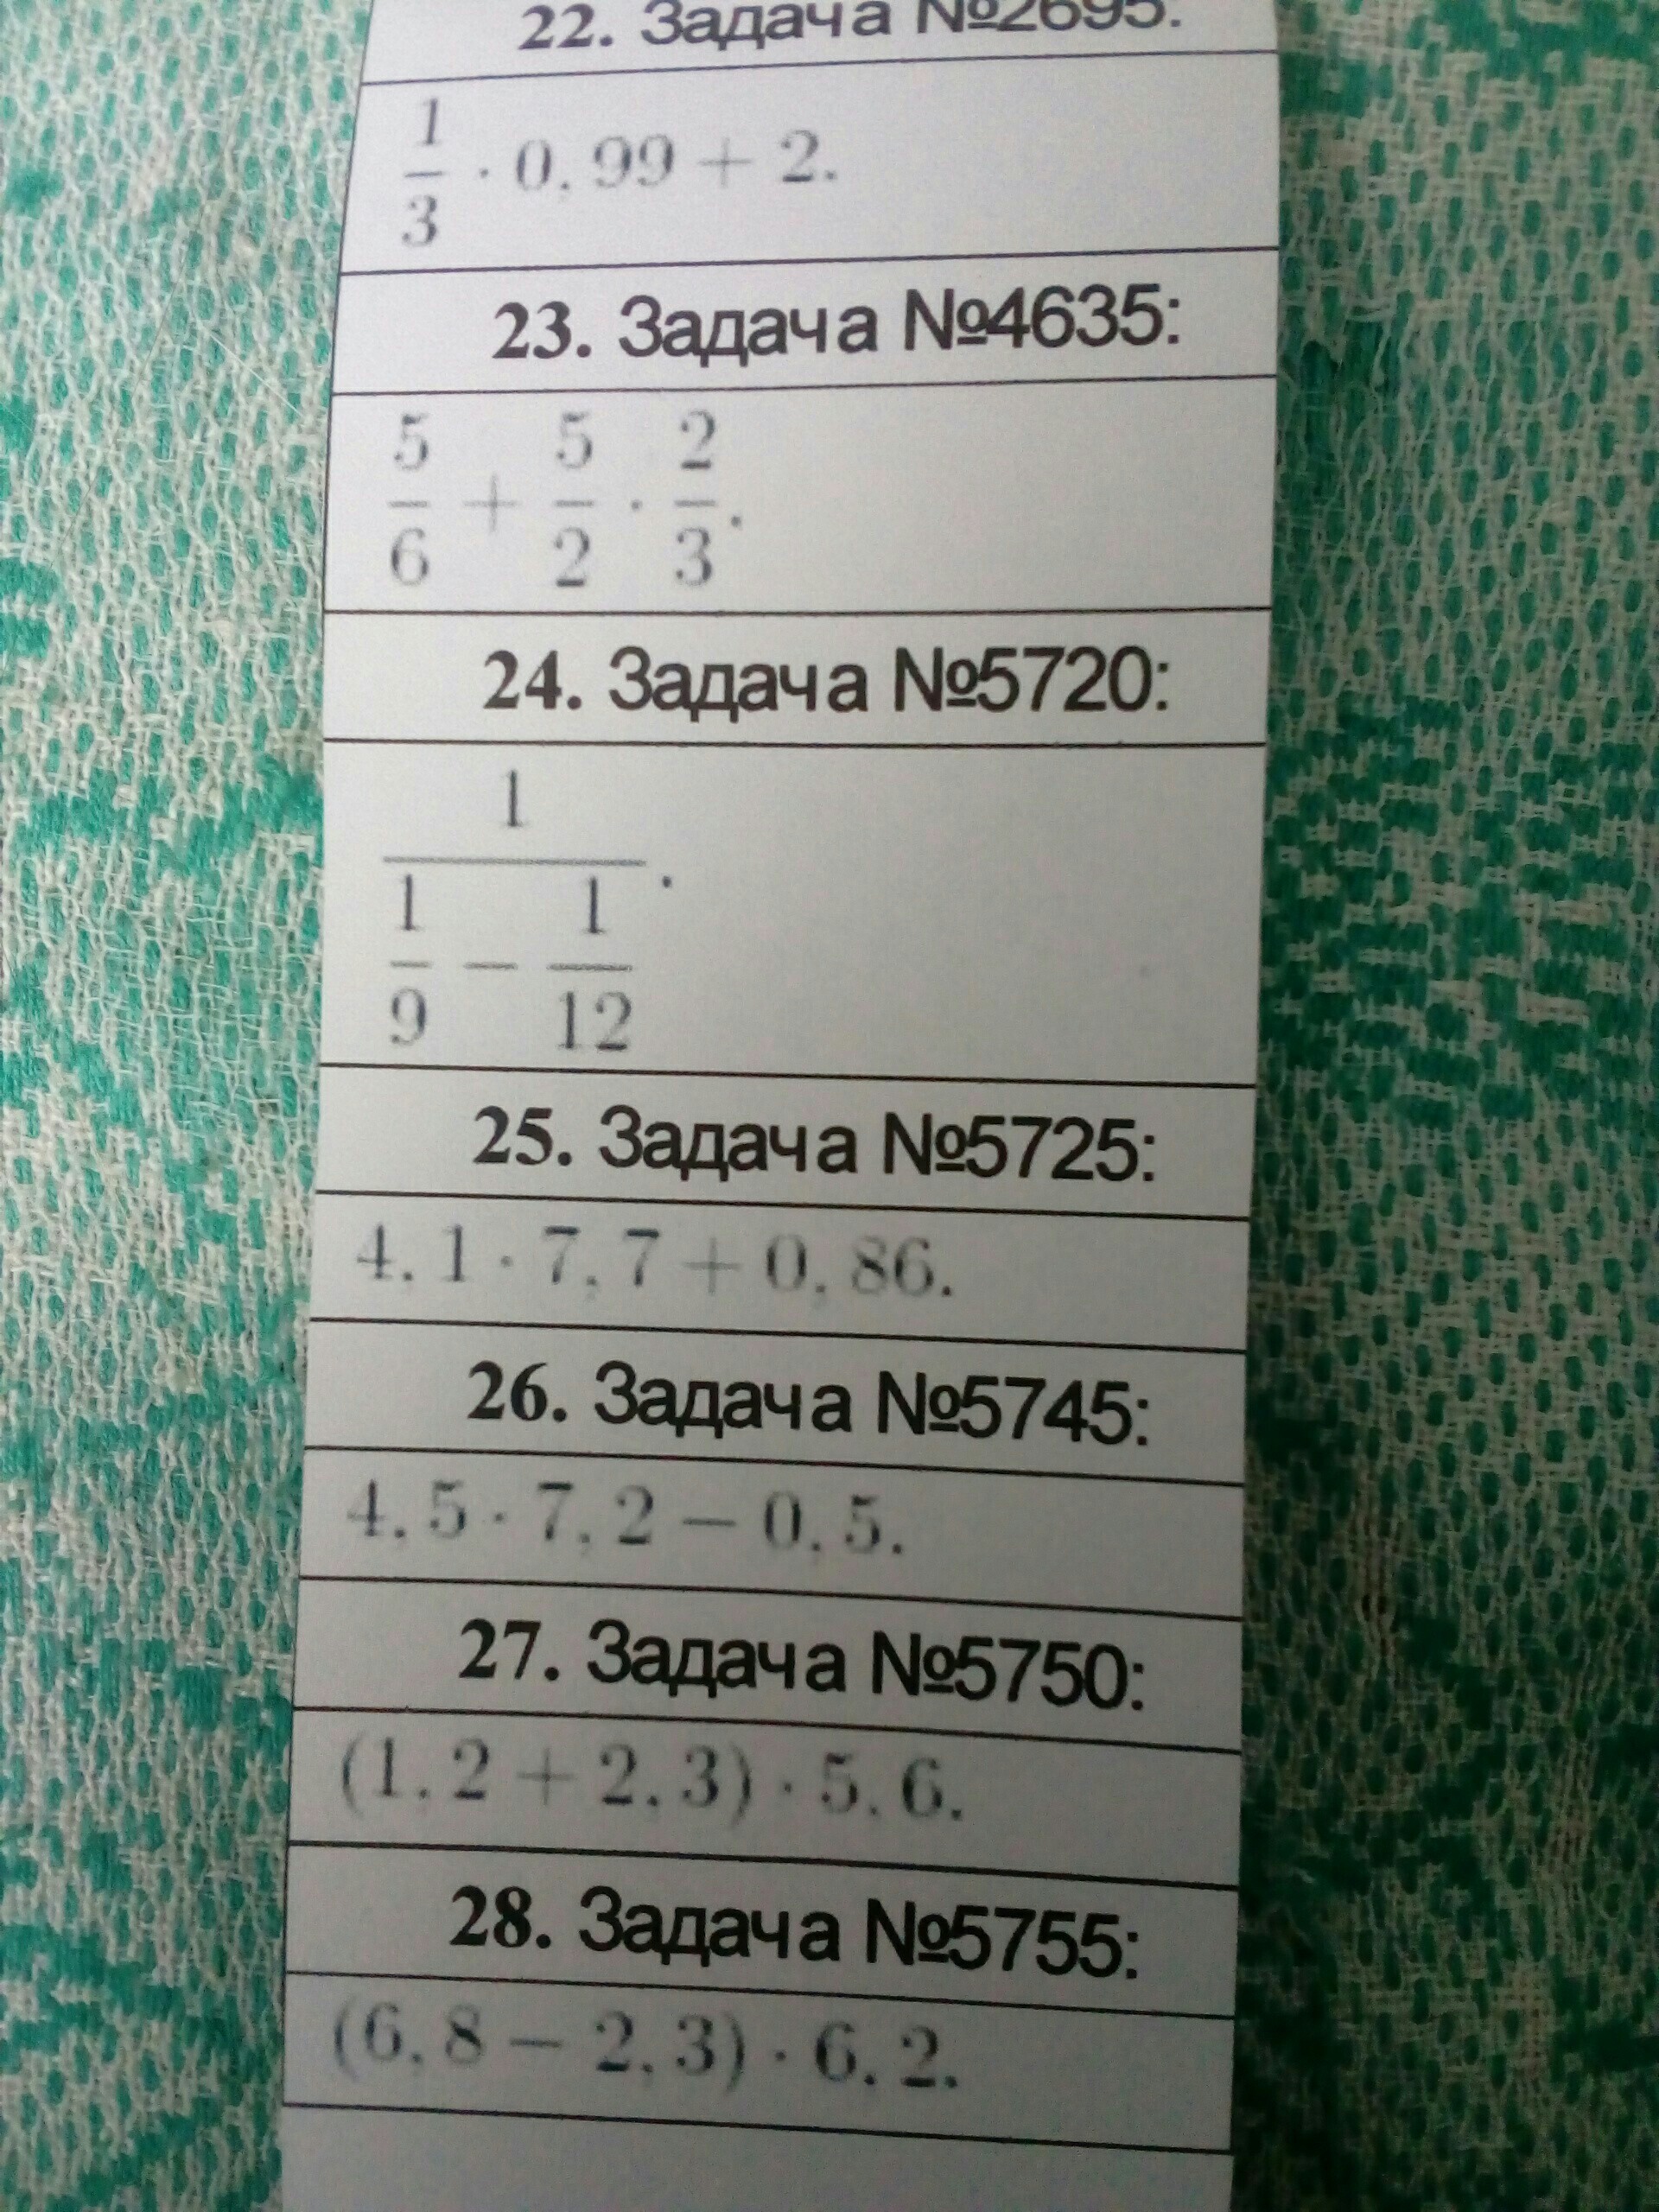 22. Задача №2695:
1/3 · 0,99 + 2.
23. Задача №4635:
5/6 + 5/2 · 2/3.
24. Задача №5720:
1/(1/9 − 1/12).
25. Задача №5725:
4,1 · 7,7 + 0,86.
26. Задача №5745:
4,5 · 7,2 − 0,5.
27. Задача №5750:
(1,2 + 2,3) · 5,6.
28. Задача №5755:
(6,8 − 2,3) · 6,2.